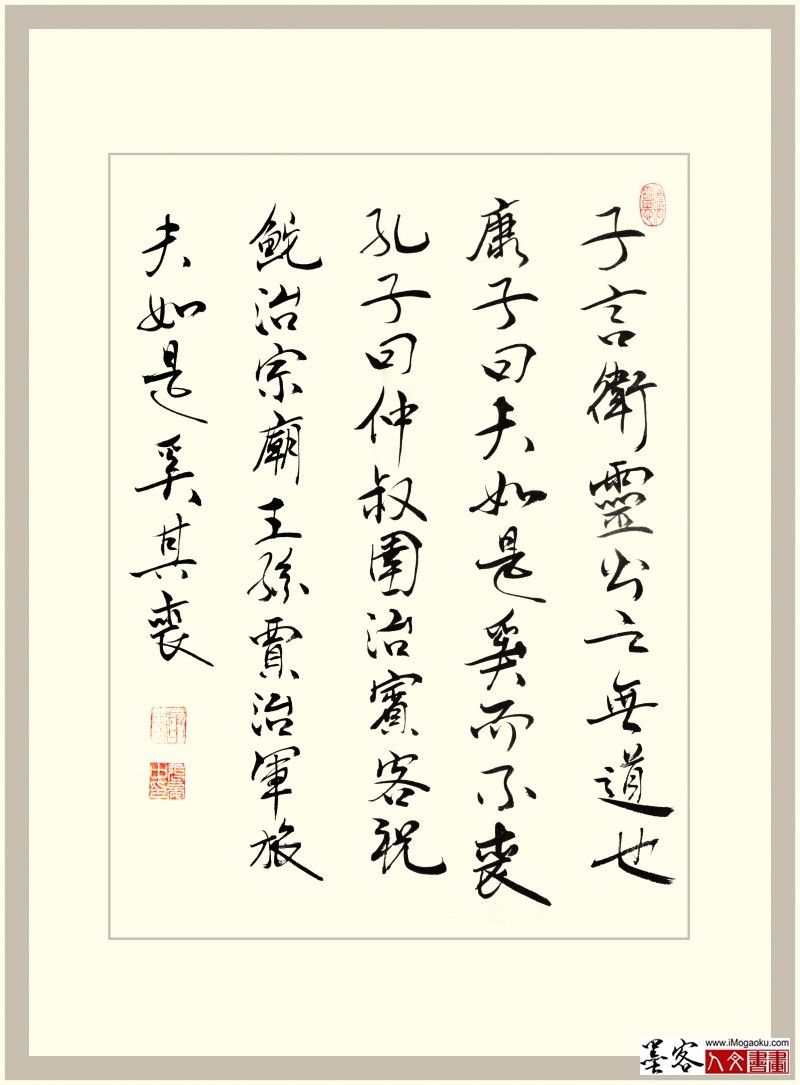 子言衛靈公之無道也
康子曰夫如是奚而不喪
孔子曰仲叔圉治賓客祝
鮀治宗廟王孫賈治軍旅
夫如是奚其喪
墨客
www.iMogaoku.com
人文書畫